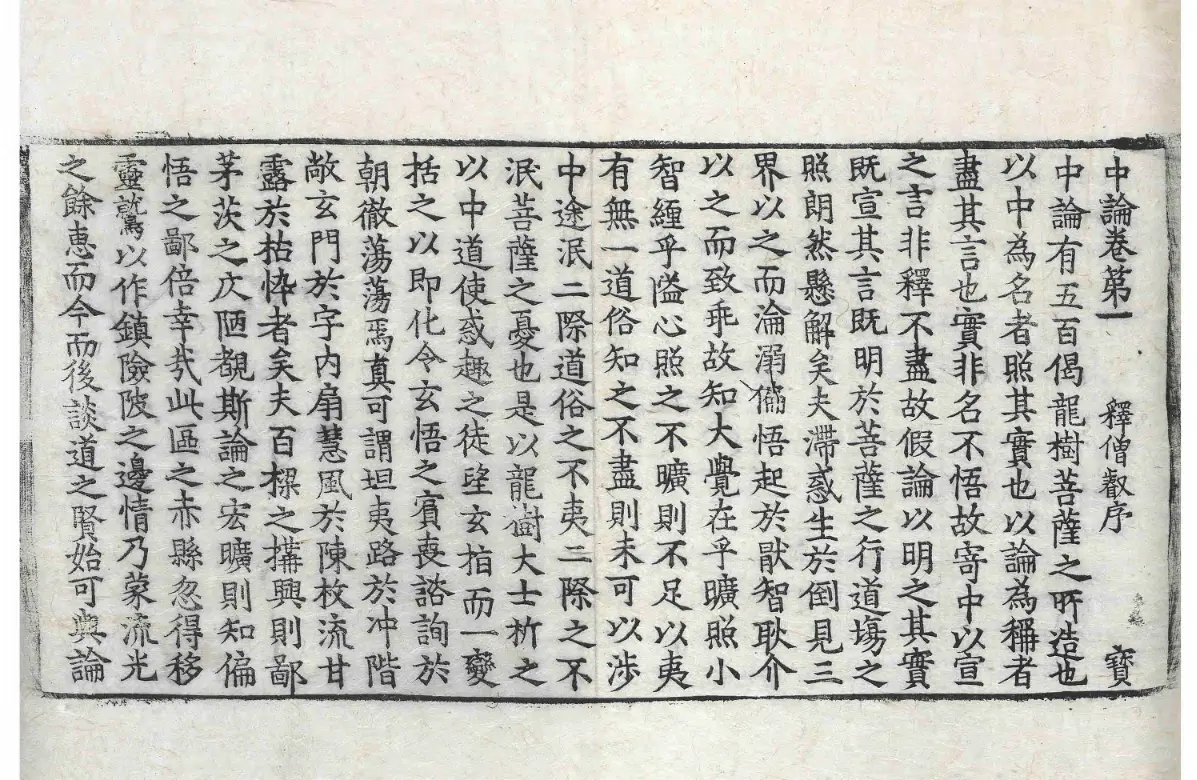 中論卷第一 釋僧叡序 寶
中論有五百偈龍樹菩薩之所造也
以中為名者照其實也以論為稱者
盡其言也實非名不悟故寄中以宣
之言非釋不盡故假論以明之其實
既宣其言既明於菩薩之行道塲之
照朗然懸解矣夫滯惑生於倒見三
界以之而淪溺偏悟起於猒智耿介
以之而致乖故知大覺在乎曠照小
智纏乎隘心照之不曠則不足以夷
有無一道俗知之不盡則未可以涉
中途泯二際道俗之不夷二際之不
泯菩薩之憂也是以龍樹大士析之
以中道使惑趣之徒望玄指而一變
括之以即化令玄悟之賓喪諮詢於
朝徹蕩蕩焉真可謂坦夷路於冲階
敞玄門於宇内扇慧風於陳枚流甘
露於枯悴者矣夫百樑之搆興則鄙
茅茨之仄陋覩斯論之宏曠則知偏
悟之鄙倍幸哉此區之赤縣忽得移
靈鷲以作鎮險陂之邊情乃蒙流光
之餘惠而今而後談道之賢始可與論